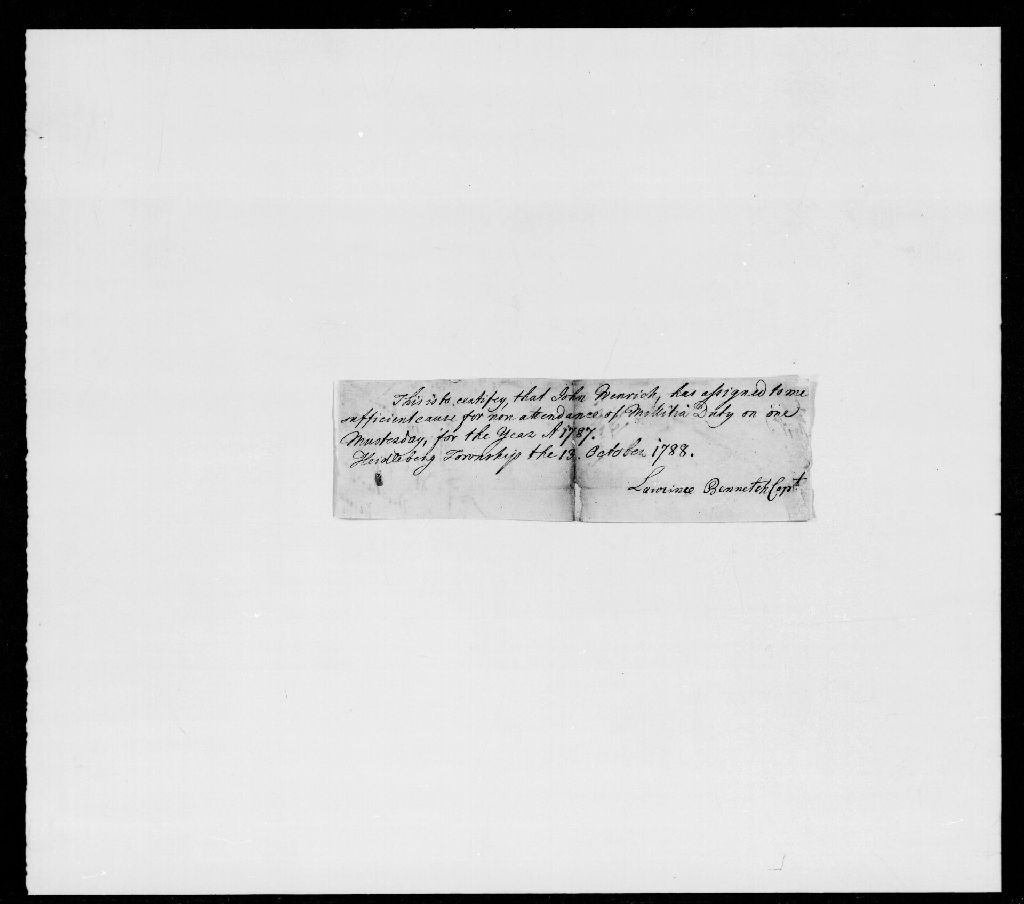 This is to certify, that John Wenrich, has assigned to me
sufficient cause for non attendance of Militia Duty on one
Musterday, for the Year A 1787.
Heidleberg Township the 13. October 1788.
Lawrence Bennetch Capt